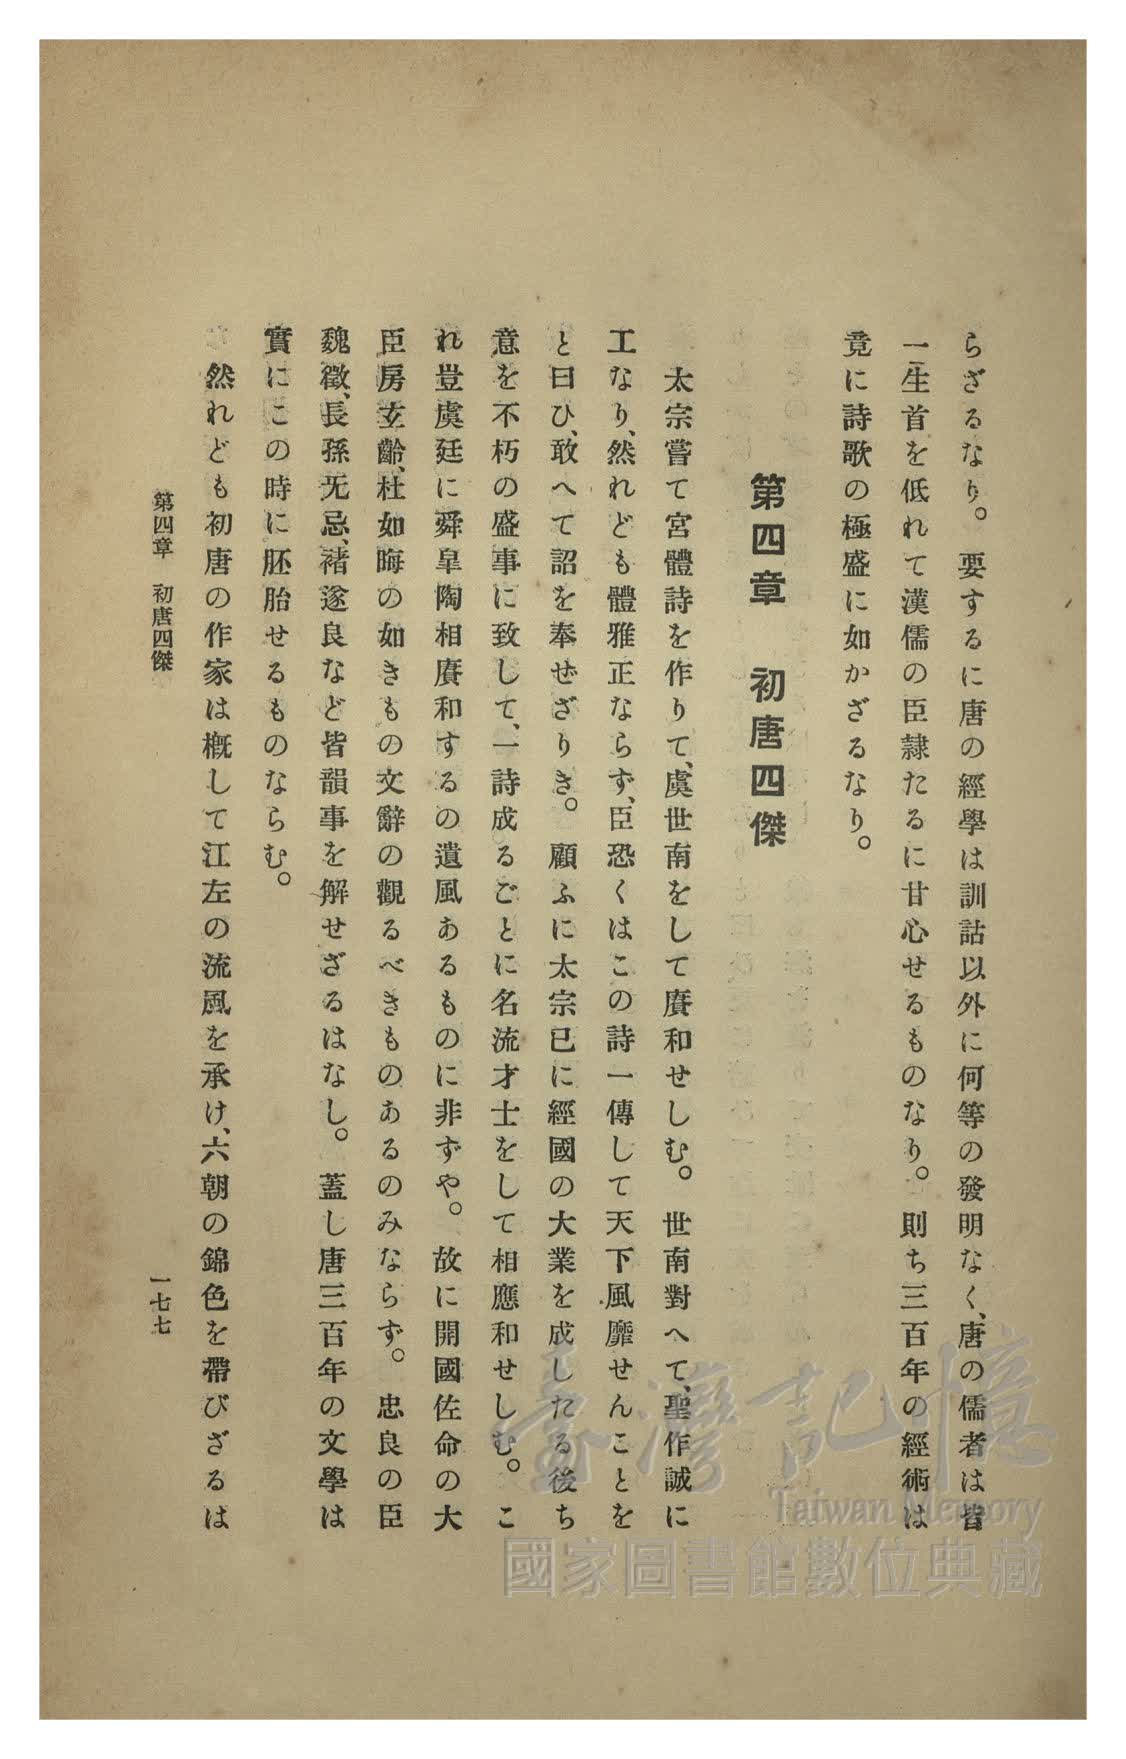 らざるなり。要するに唐の經學は訓詁以外に何等の發明なく、唐の儒者は皆
一生首を低れて漢儒の臣隷たるに甘心せるものなり。則ち三百年の經術は
竟に詩歌の極盛に如かざるなり。
第四章　初唐四傑
太宗嘗て宮體詩を作りて、虞世南をして賡和せしむ。世南對へて、聖作誠に
工なり、然れども體雅正ならず、臣恐くはこの詩一傳して天下風靡せんことを
と曰ひ、敢へて詔を奉ぜざりき。顧ふに太宗已に經國の大業を成したる後ち
意を不朽の盛事に致して、一詩成るごとに名流才士をして相應和せしむ。こ
れ豈虞廷に舜皐陶相賡和するの遺風あるものに非ずや。故に開國佐命の大
臣房玄齡、杜如晦の如きもの文辭の觀るべきものあるのみならず。忠良の臣
魏徵、長孫无忌、褚遂良など皆韻事を解せざるはなし。蓋し唐三百年の文學は
實にこの時に胚胎せるものならむ。
然れども初唐の作家は槪して江左の流風を承け、六朝の錦色を帶びざるは
第四章　初唐四傑
一七七
臺灣記憶
Taiwan Memory
國家圖書館數位典藏